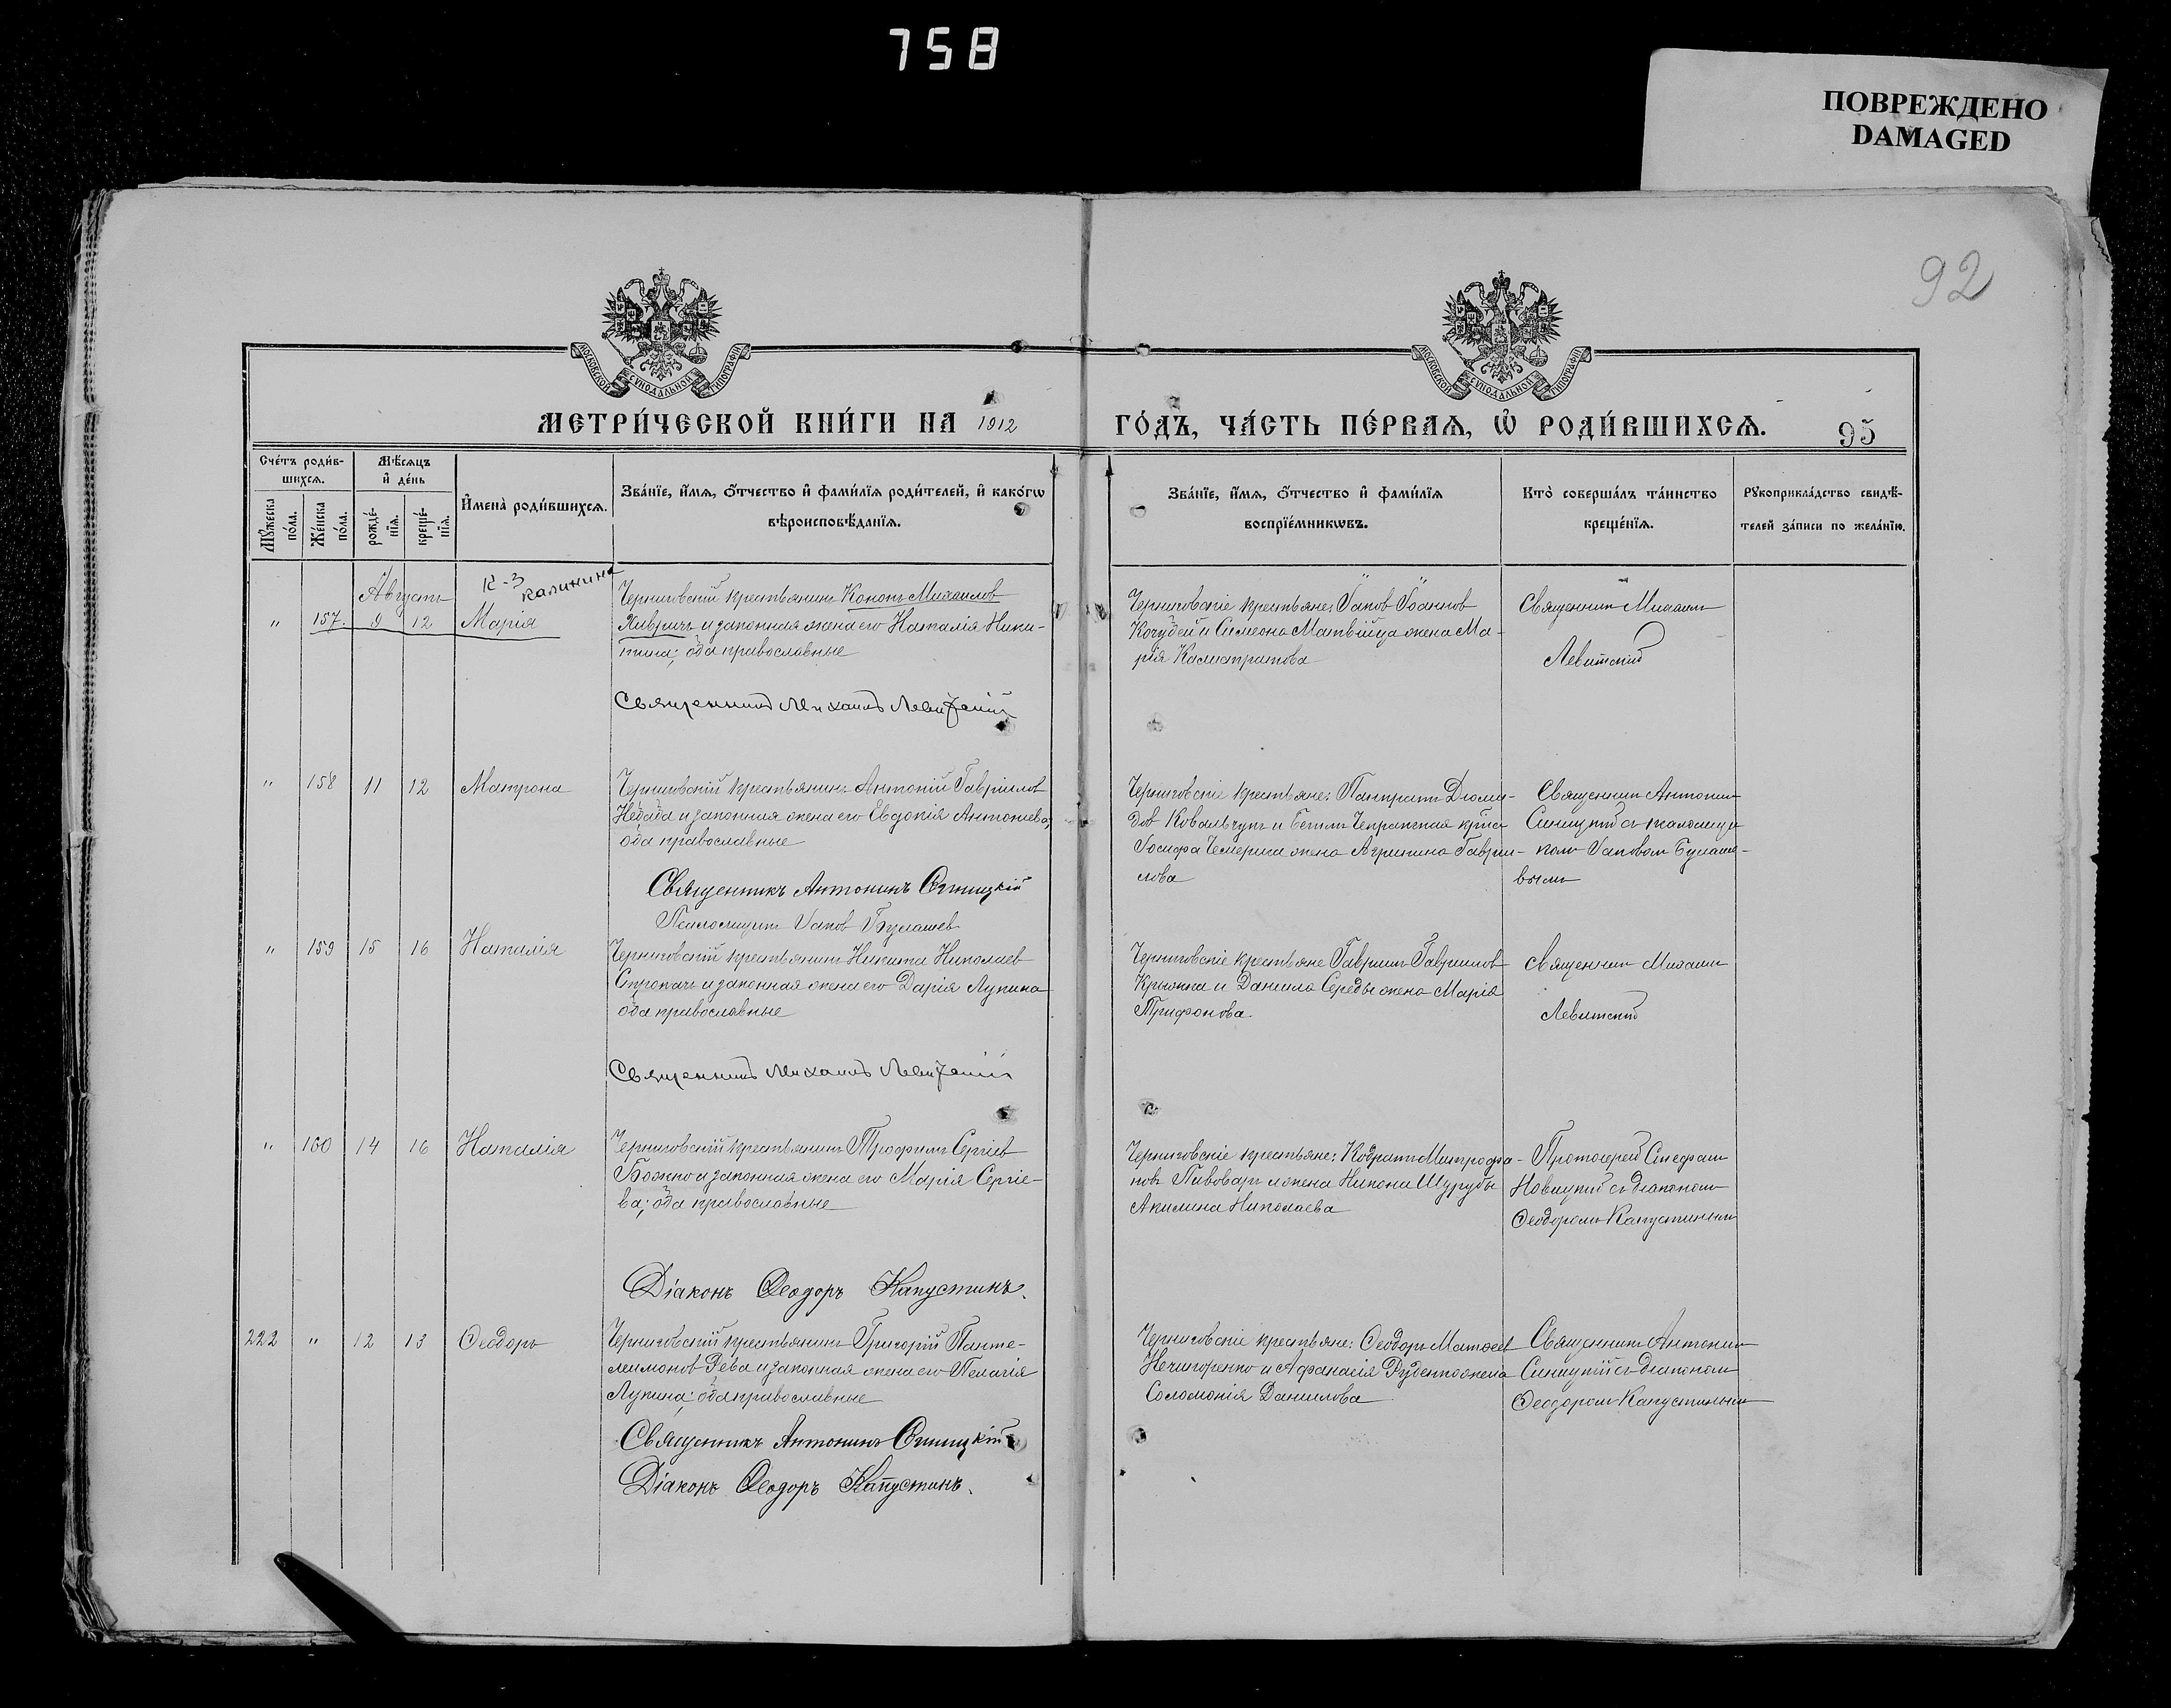 758
ПОВРЕЖДЕНО
DAMAGED
92
МОСКОВСКОЙ СѴНОДАЛЬНОЙ ТИПОГРАФІИ
МОСКОВСКОЙ СѴНОДАЛЬНОЙ ТИПОГРАФІИ
МЕТРИ́ЧЕСКОЙ КНИ́ГИ НА 1912
ГО́ДЪ, ЧА́СТЬ ПЕ́РВАѦ, Ѡ҆ РОДИ́ВШИХСѦ.
95
Сче́тъ роди́в-
шихсѧ.
Мꙋ́жеска
по́ла.
Же́нска
по́ла.
Мѣ́сѧцъ
и҆ де́нь
рожде́-
нїѧ.
креще́-
нїѧ.
И҆мена̀ роди́вшихсѧ.
Зва́нїе, и҆́мѧ, ѻ҆́тчество и҆ фами́лїѧ роди́телей, и҆ како́гѡ
вѣроисповѣ́данїѧ.
Зва́нїе, и҆́мѧ, ѻ҆́тчество и҆ фами́лїѧ
воспрїе́мникѡвъ.
Кто̀ соверша́лъ та́инство
креще́нїѧ.
Рꙋкоприкла́дство свидѣ́-
телей за́писи по жела́нїю.
Августъ
К-з калинина
" 157. 9 12 Марія
Черниговскій крестьянинъ Кононъ Михаиловъ
и законная жена его Наталія Ники-
тина; оба православные
Священникъ Михаилъ Левитскій
Черниговскіе крестьяне: Іаковъ Іоанновъ
Кочубей и Симеона Матвійца жена Ма-
рія Калистратова
Священникъ Михаилъ
Левитскій
" 158 11 12 Матрона
Черниговскій крестьянинъ Антоній Гавріиловъ
Небаба и законная жена его Евдокія Антониева;
оба православные
Священникъ Антонинъ Синицкій
Псаломщикъ Іаковъ Булашев
Черниговскіе крестьяне: Панкратъ Діоми-
довъ Ковальчукъ и
Іосифа Чемериса жена Агрипина Гаврии-
лова
Священникъ Антонинъ
Синицкій съ псаломщи-
комъ Іаковомъ Булаше-
вымъ
" 159 15 16 Наталія
Черниговскій крестьянинъ Никита Николаев
и законная жена его Дарія Лукина
оба православные
Священникъ Михаилъ Левитскій
Черниговскіе крестьяне Гавриилъ Гаврииловъ
и Даниила Середы жена Марія
Трифонова
Священникъ Михаилъ
Левитскій
" 160 14 16 Наталія
Черниговскій крестьянинъ Трофимъ Сергіев
Божко и законная жена его Марія Сергіе-
ва; оба православные
Діаконъ Ѳеодоръ Капустинъ.
Черниговскіе крестьяне: Кодратъ Митрофа-
новъ Пивоваръ и жена Никона Шурубы
Акилина Николаева
Протоіерей Стефанъ
Новицкій съ діакономъ
Ѳеодоромъ Капустинымъ
222 " 12 13 Ѳеодоръ
Черниговскій крестьянинъ Григорій Панте-
леимоновъ Рева и законная жена его Пелагія
Лукина; оба православные
Священникъ Антонинъ Синицкій
Діаконъ Ѳеодоръ Капустинъ.
Черниговскіе крестьяне: Ѳеодоръ Матѳеев
Нечипоренко и Афанасія Руденко жена
Соломонія Данилова
Священникъ Антонинъ
Синицкій съ діакономъ
Ѳеодоромъ Капустинымъ